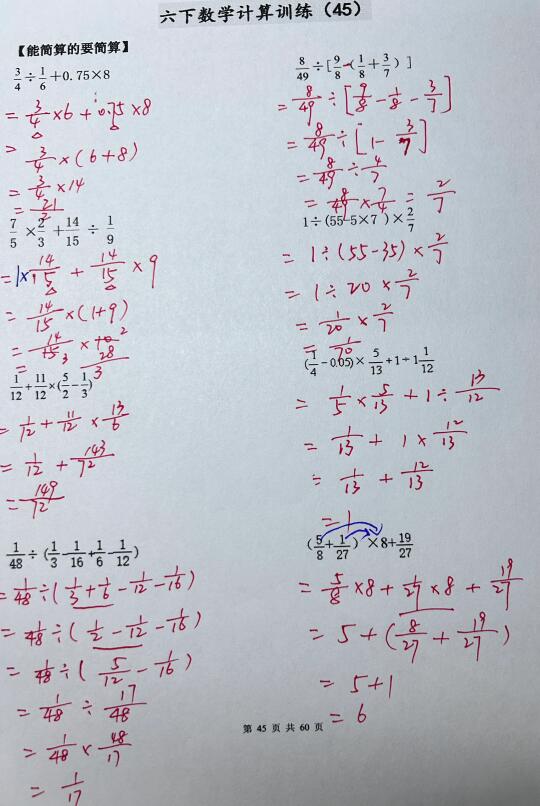 六下数学计算训练（45）
【能简算的要简算】
3/4÷1/6+0.75×8
=3/4×6+0.75×8
=3/4×(6+8)
=3/4×14
=21/2
7/5×2/3+14/15÷1/9
=1×14/15+14/15×9
=14/15×(1+9)
=14/15 3×10 2
=28/3
1/12+11/12×(5/2-1/3)
=1/12+11/12×13/6
=1/12+143/72
=149/72
1/48÷(1/3-1/16+1/6-1/12)
=1/48÷(1/3+1/6-1/12-1/16)
=1/48÷(1/2-1/12-1/16)
=1/48÷(5/12-1/16)
=1/48÷17/48
=1/48×48/17
=1/17
8/49÷[9/8-(1/8+3/7)]
=8/49÷[9/8-1/8-3/7]
=8/49÷[1-3/7]
=8/49÷4/7
=8/49×7/4=2/7
1÷(55-5×7)×2/7
=1÷(55-35)×2/7
=1÷20×2/7
=1/20×2/7
=1/70
(1/4-0.05)×5/13+1÷1 1/12
=1/5×5/13+1÷13/12
=1/13+1×12/13
=1/13+12/13
=1
(5/8+1/27)×8+19/27
=5/8×8+1/27×8+19/27
=5+(8/27+19/27)
=5+1
=6
第 45 页 共 60 页